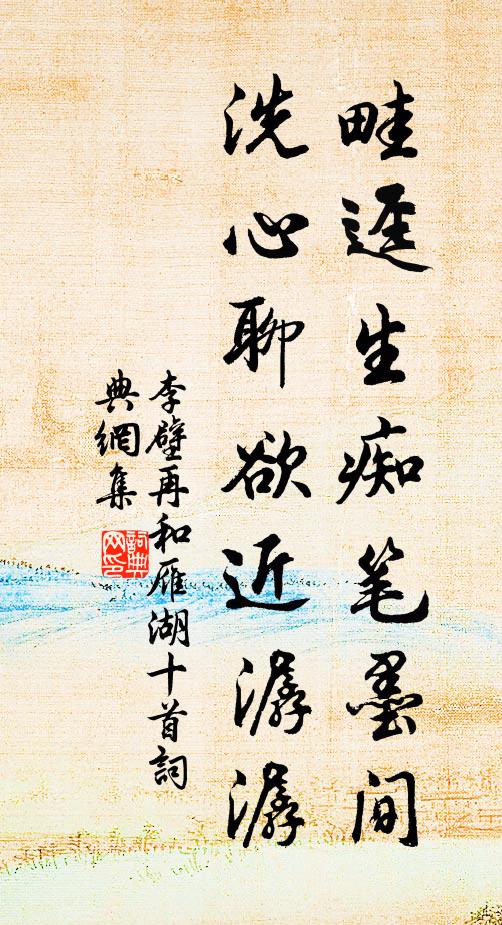 畦逕生痴笔墨间
洗心聊欲近潺潺
李壁再和雁湖十首詞
典網集
詞典
网印